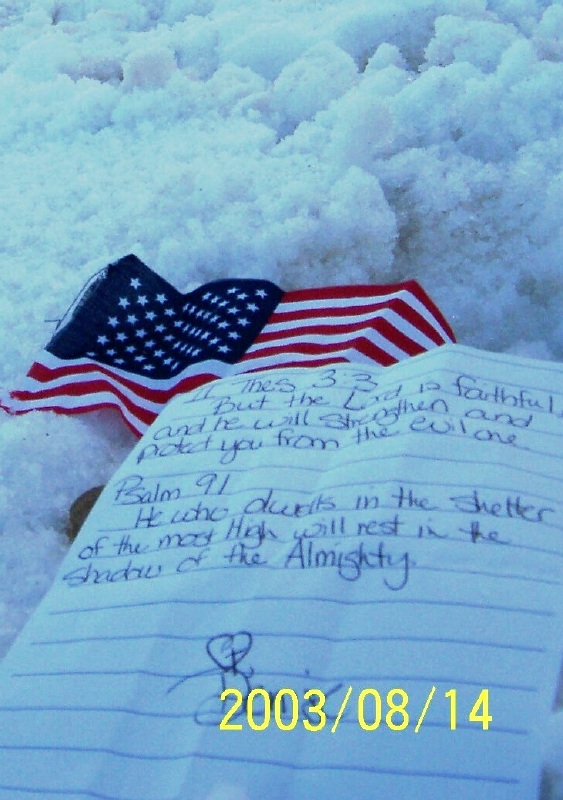 II Thes 3:3
But the Lord is faithful,
and he will strengthen and
protect you from the evil one
Psalm 91
He who dwells in the shelter
of the most High will rest in the
shadow of the Almighty.
2003/08/14